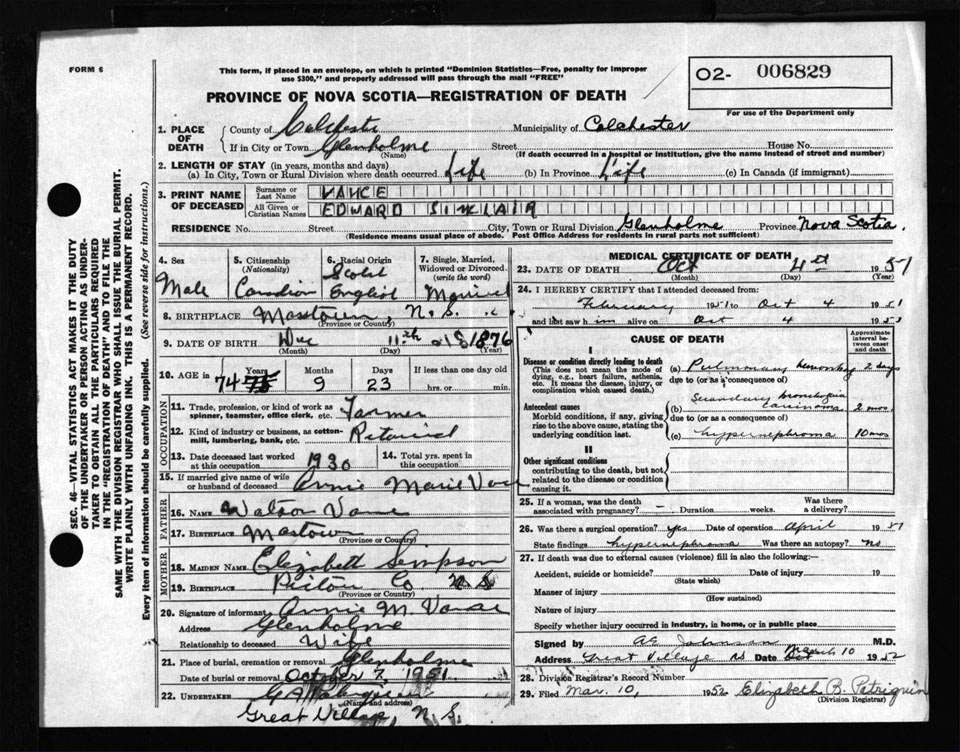 FORM 6
This form, if placed in an envelope, on which is printed "Dominion Statistics—Free, penalty for improper
use $300," and properly addressed will pass through the mail "FREE"
O2- 006829
For use of the Department only
PROVINCE OF NOVA SCOTIA—REGISTRATION OF DEATH
1. PLACE OF DEATH { County of Colchester Municipality of Colchester
If in City or Town Glenholme Street House No.
(Name) (If death occurred in a hospital or institution, give the name instead of street and number)
2. LENGTH OF STAY (in years, months and days)
(a) In City, Town or Rural Division where death occurred Life (b) In Province Life (c) In Canada (if immigrant)
3. PRINT NAME OF DECEASED { Surname or Last Name VANCE
All Given or Christian Names EDWARD SINKLAIR
RESIDENCE No. Street City, Town or Rural Division Glenholme Province Nova Scotia.
(Residence means usual place of abode. Post Office Address for residents in rural parts not sufficient)
SEC. 46—VITAL STATISTICS ACT MAKES IT THE DUTY
OF THE UNDERTAKER OR PERSON ACTING AS UNDER-
TAKER TO OBTAIN ALL THE PARTICULARS REQUIRED
IN THE "REGISTRATION OF DEATH" AND TO FILE THE
SAME WITH THE DIVISION REGISTRAR WHO SHALL ISSUE THE BURIAL PERMIT.
WRITE PLAINLY WITH UNFADING INK. THIS IS A PERMANENT RECORD.
Every item of information should be carefully supplied. (See reverse side for instructions.)
4. Sex 5. Citizenship (Nationality) 6. Racial Origin 7. Single, Married, Widowed or Divorced. (write the word)
Male Canadian English Married
8. BIRTHPLACE Masstown, N.S.
(Province or Country)
9. DATE OF BIRTH 11th 1876
(Month) (Day) (Year)
10. AGE in Years Months Days If less than one day old
74 9 23 hrs. or min.
OCCUPATION
11. Trade, profession, or kind of work as spinner, teamster, office clerk, etc. Farmer
12. Kind of industry or business, as cotton-mill, lumbering, bank, etc. Retired
13. Date deceased last worked at this occupation 1930 14. Total yrs. spent in this occupation
15. If married give name of wife or husband of deceased Annie Marie Vance
FATHER
16. NAME Watson Vance
17. BIRTHPLACE Mastown
(Province or Country)
MOTHER
18. MAIDEN NAME Elizabeth Simpson
19. BIRTHPLACE Pictou Co N S
(Province or Country)
20. Signature of informant Annie M. Vance
Address Glenholme
Relationship to deceased Wife
21. Place of burial, cremation or removal Glenholme
Date of burial or removal October 7, 1951
22. UNDERTAKER G A
(Name and address)
Great Village, N.S.
MEDICAL CERTIFICATE OF DEATH
23. DATE OF DEATH Oct 4th 1951
(Month) (Day) (Year)
24. I HEREBY CERTIFY that I attended deceased from:
February 1951 to Oct 4 1951
and last saw him alive on Oct 4 1951
CAUSE OF DEATH Approximate interval between onset and death
I
Disease or condition directly leading to death
(This does not mean the mode of dying, e.g., heart failure, asthenia, etc. It means the disease, injury, or complication which caused death.)
(a) Pulmonary hemorrhage 2 days
due to (or as a consequence of)
Antecedent causes
Morbid conditions, if any, giving rise to the above cause, stating the underlying condition last.
(b) Secondary carcinoma 2 mos.
due to (or as a consequence of)
(c) hypernephroma 10 mos
II
Other significant conditions
contributing to the death, but not related to the disease or condition causing it.
25. If a woman, was the death associated with pregnancy? — Duration weeks. Was there a delivery?
26. Was there surgical operation? yes Date of operation April 1951
State findings hypernephroma Was there an autopsy? No
27. If death was due to external causes (violence) fill in also the following:—
Accident, suicide or homicide? Date of injury 19
(State which)
Manner of injury
(How sustained)
Nature of injury
Specify whether injury occurred in industry, in home, or in public place
Signed by AE Johnson M.D.
Address Great Village NS Date March 10 1952
28. Division Registrar's Record Number
29. Filed Mar. 10, 1952 Elizabeth B. Patriquin
(Division Registrar)